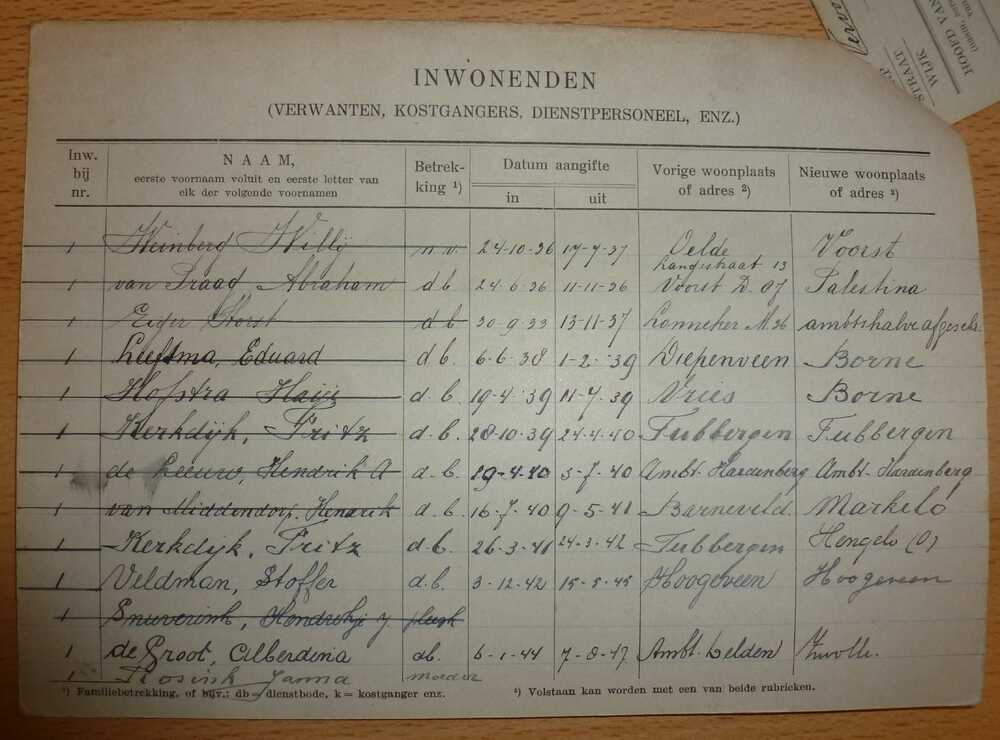 HOOFD VAN
WIJK
STRAAT
INWONENDEN
(VERWANTEN, KOSTGANGERS, DIENSTPERSONEEL, ENZ.)
Inw. bij nr.
NAAM,
eerste voornaam voluit en eerste letter van elk der volgende voornamen
Betrekking ¹)
Datum aangifte
in
uit
Vorige woonplaats of adres ²)
Nieuwe woonplaats of adres ²)
1 Weinberg Willy n.v. 24-10-36 17-7-37 Oelde Langestraat 13 Voorst
1 van Praag Abraham d.b 24-6-36 11-11-36 Voorst D. 07 Palestina
1 Eiger Horst d b 30-9-33 13-11-37 Lonneker M 36 ambtshalve afgeschr
1 Leefsma, Eduard d.b. 6-6-38 1-2-39 Diepenveen Borne
1 Hofstra d.b. 19-4-39 11-7-39 Vries Borne
1 Kerkdijk, Fritz d.b. 28-10-39 24-4-40 Tubbergen Tubbergen
1 de Leeuw, Hendrik A d.b. 19-4-40 5-7-40 Ambt-Hardenberg Ambt-Hardenberg
1 van Middendorp, Hendrik d.b. 16-7-40 9-5-41 Barneveld. Markelo
1 Kerkdijk, Fritz d.b. 26-3-41 24-3-42 Tubbergen Hengelo (O)
1 Veldman, Stoffer d.b. 3-12-42 15-5-45 Hoogeveen Hoogeveen
1 Snuverink, Hendrikje
1 de Groot, Alberdina db. 6-1-44 7-8-47 Ambt-Delden Zwolle.
1 Rosink Janna moeder
¹) Familiebetrekking, of bijv.: db = dienstbode, k = kostganger enz.
²) Volstaan kan worden met een van beide rubrieken.